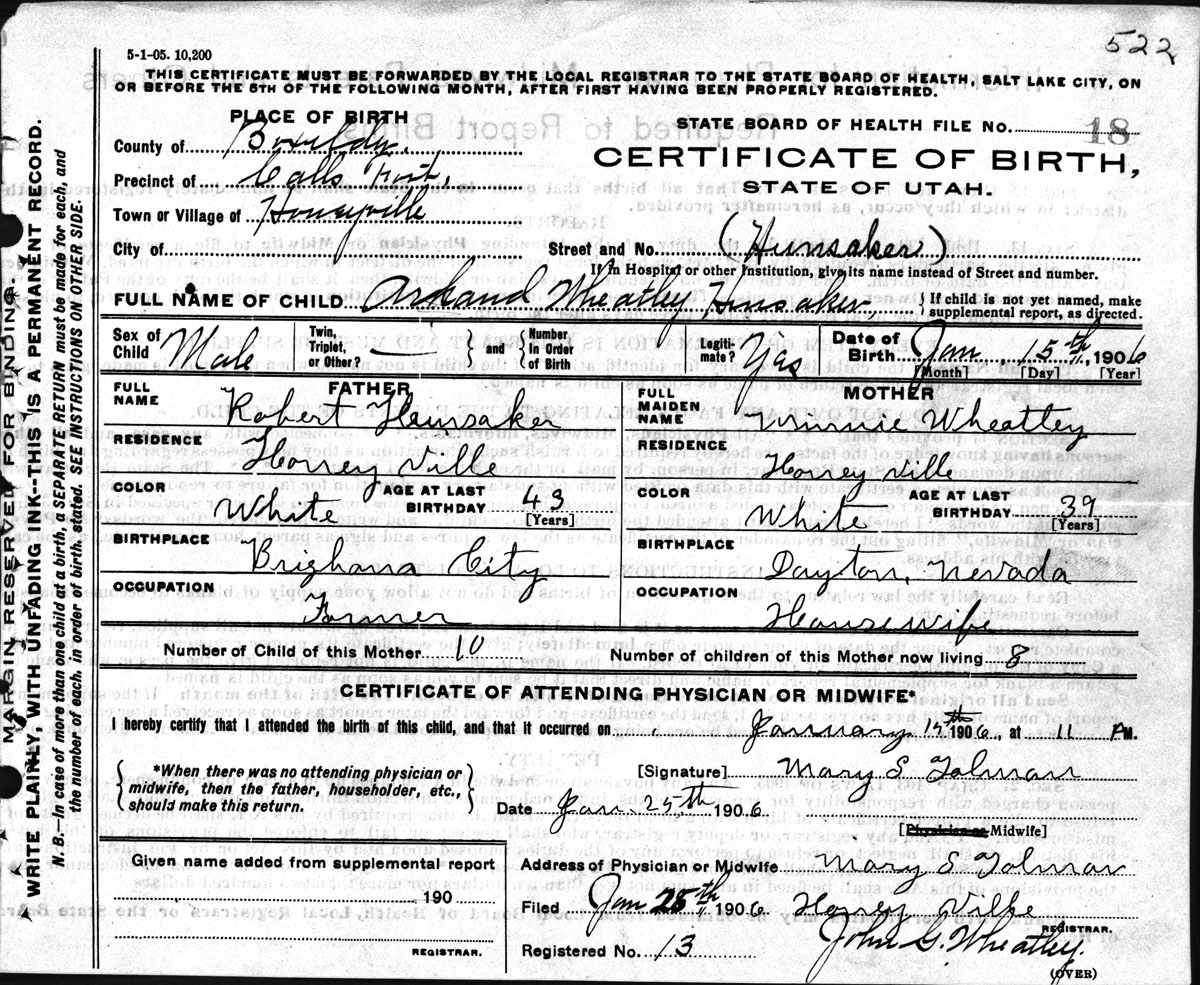 522
5-1-05. 10,200
THIS CERTIFICATE MUST BE FORWARDED BY THE LOCAL REGISTRAR TO THE STATE BOARD OF HEALTH, SALT LAKE CITY, ON
OR BEFORE THE 5TH OF THE FOLLOWING MONTH, AFTER FIRST HAVING BEEN PROPERLY REGISTERED.
PLACE OF BIRTH
STATE BOARD OF HEALTH FILE NO. 18
County of
CERTIFICATE OF BIRTH,
Precinct of Calls Fort,
STATE OF UTAH.
Town or Village of Honeyville
City of Street and No. (Hunsaker)
If in Hospital or other Institution, give its name instead of Street and number.
FULL NAME OF CHILD Wheatley Hunsaker, { If child is not yet named, make
supplemental report, as directed.
Sex of Child Male
Twin, Triplet, or Other? — } and { Number, in Order of Birth
Legiti-mate? Yas
Date of Birth Jan, 15th, 1906
[Month] [Day] [Year]
FATHER
FULL NAME Robert Hunsaker
RESIDENCE Honey Ville
COLOR White AGE AT LAST BIRTHDAY 43
[Years]
BIRTHPLACE Brigham City
OCCUPATION Farmer
MOTHER
FULL MAIDEN NAME Vinnie Wheatley
RESIDENCE Honey Ville
COLOR White AGE AT LAST BIRTHDAY 39
[Years]
BIRTHPLACE Dayton, Nevada
OCCUPATION House wife
Number of Child of this Mother 10 Number of children of this Mother now living 8
CERTIFICATE OF ATTENDING PHYSICIAN OR MIDWIFE*
I hereby certify that I attended the birth of this child, and that it occurred on January 15th 1906, at 11 PM.
{ *When there was no attending physician or
midwife, then the father, householder, etc.,
should make this return. }
[Signature] Mary S Tolman
Date Jan 25th 1906
[Physician or Midwife]
Given name added from supplemental report
190
REGISTRAR.
Address of Physician or Midwife Mary S Tolman
Filed Jan 25th 1906 Honey Ville
Registered No. 13 John G. Wheatley.
REGISTRAR.
(OVER)
MARGIN RESERVED FOR BINDING.
WRITE PLAINLY, WITH UNFADING INK--THIS IS A PERMANENT RECORD.
N. B.—In case of more than one child at a birth, a SEPARATE RETURN must be made for each, and
the number of each, in order of birth, stated. SEE INSTRUCTIONS ON OTHER SIDE.